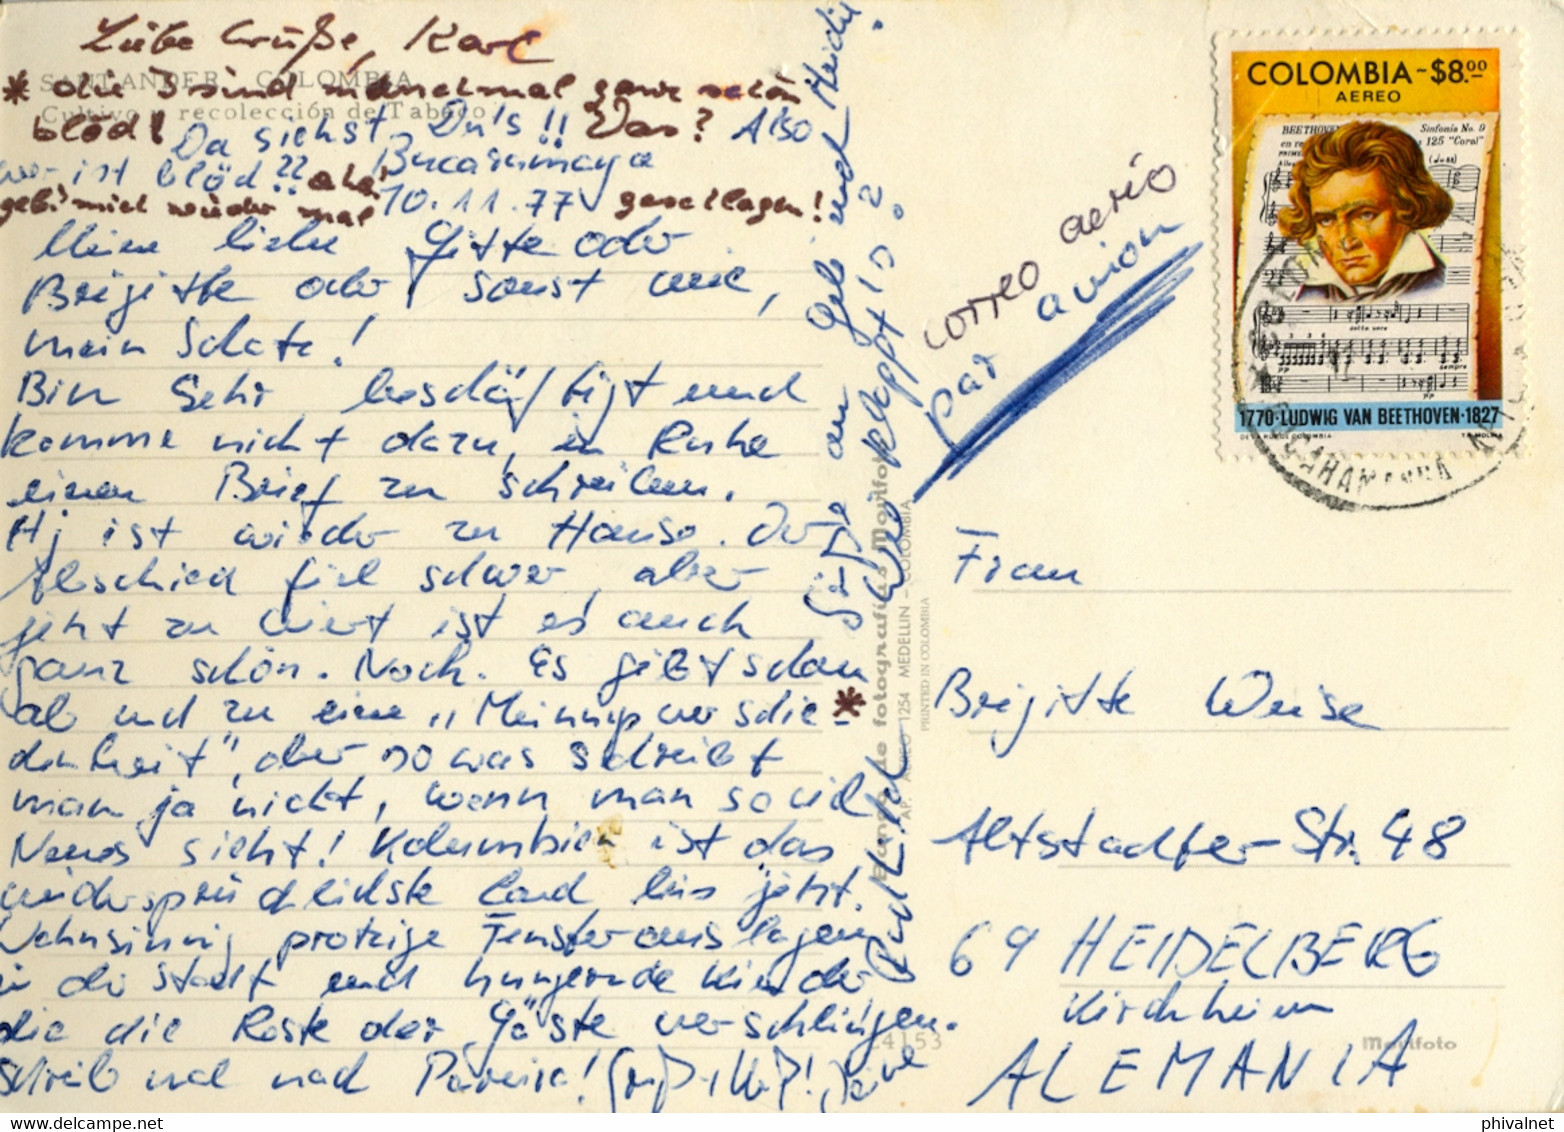 Liebe Grüße, Karl
SANTANDER - COLOMBIA
* die 3 sind manchmal ganz schön
Cultivo y recolección de Tabaco
blöd! Da siehst Du's!! Was? Also
wer ist blöd?? aha!
Bucaramaga
geb' mich wieder mal geschlagen!
10.11.77
Meine liebe Gitte oder
Brigitte oder sonst wie,
mein Schatz!
Bin sehr beschäftigt und
komme nicht dazu, in Ruhe
einen Brief zu schreiben.
Hj ist wieder zu Hause. Der
Abschied fiel schwer, aber
jetzt zu viert ist es auch
ganz schön. Noch. Es gibt schon
ab und zu eine „Meinungsverschie- *
denheit", aber so was schreibt
man ja nicht, wenn man so viel
Neues sieht! Kolumbien ist das
widersprüchlichste Land bis jetzt.
Wahnsinnig protzige Fensterauslagen
in der Stadt und hungernde Kinder
die die Reste der Gäste verschlingen.
Schreib mal nach Panama! Gruß + Kuß!
Grüße an Gel und Heidi
Wie klappt's?
fotografías Movifoto
AP. AEREO 1254 MEDELLIN - COLOMBIA
PRINTED IN COLOMBIA
4153
Movifoto
correo aerio
par avion
COLOMBIA-$8.00
AEREO
BEETHOVEN
Sinfonía No. 9
125 "Coral"
pp
sempre
pp
1770·LUDWIG VAN BEETHOVEN·1827
DE LA RUE DE COLOMBIA
T. MOLINA
Frau
Brigitte Weise
Altstadter-Str. 48
69 HEIDELBERG
Kirchheim
ALEMANIA
phivalnet